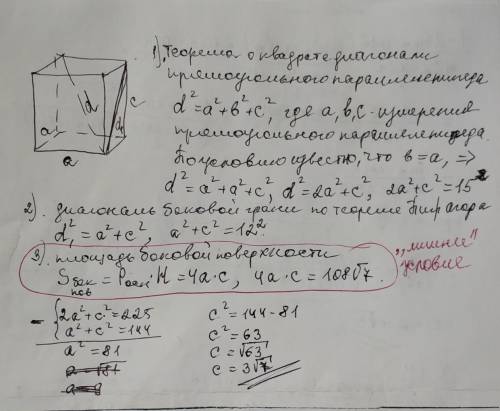 1). Теорема о квадрате диагонали
прямоугольного параллелепипеда
d²=a²+b²+c², где a, b, c - измерения
прямоугольного параллелепипеда.
По условию известно, что b=a, =>
d²=a²+a²+c², d²=2a²+c², 2a²+c²=15²
a d c d₁
a
2). диагональ боковой грани по теореме Пифагора
d₁²=a²+c², a²+c²=12²
3). площадь боковой поверхности
Sбок пов = Pосн·H = 4a·c, 4a·c=108√7.
"лишнее"
условие
- { 2a²+c²=225
a²+c²=144
a²=81
a=√81
a=9
c²=144-81
c²=63
c=√63
c=3√7